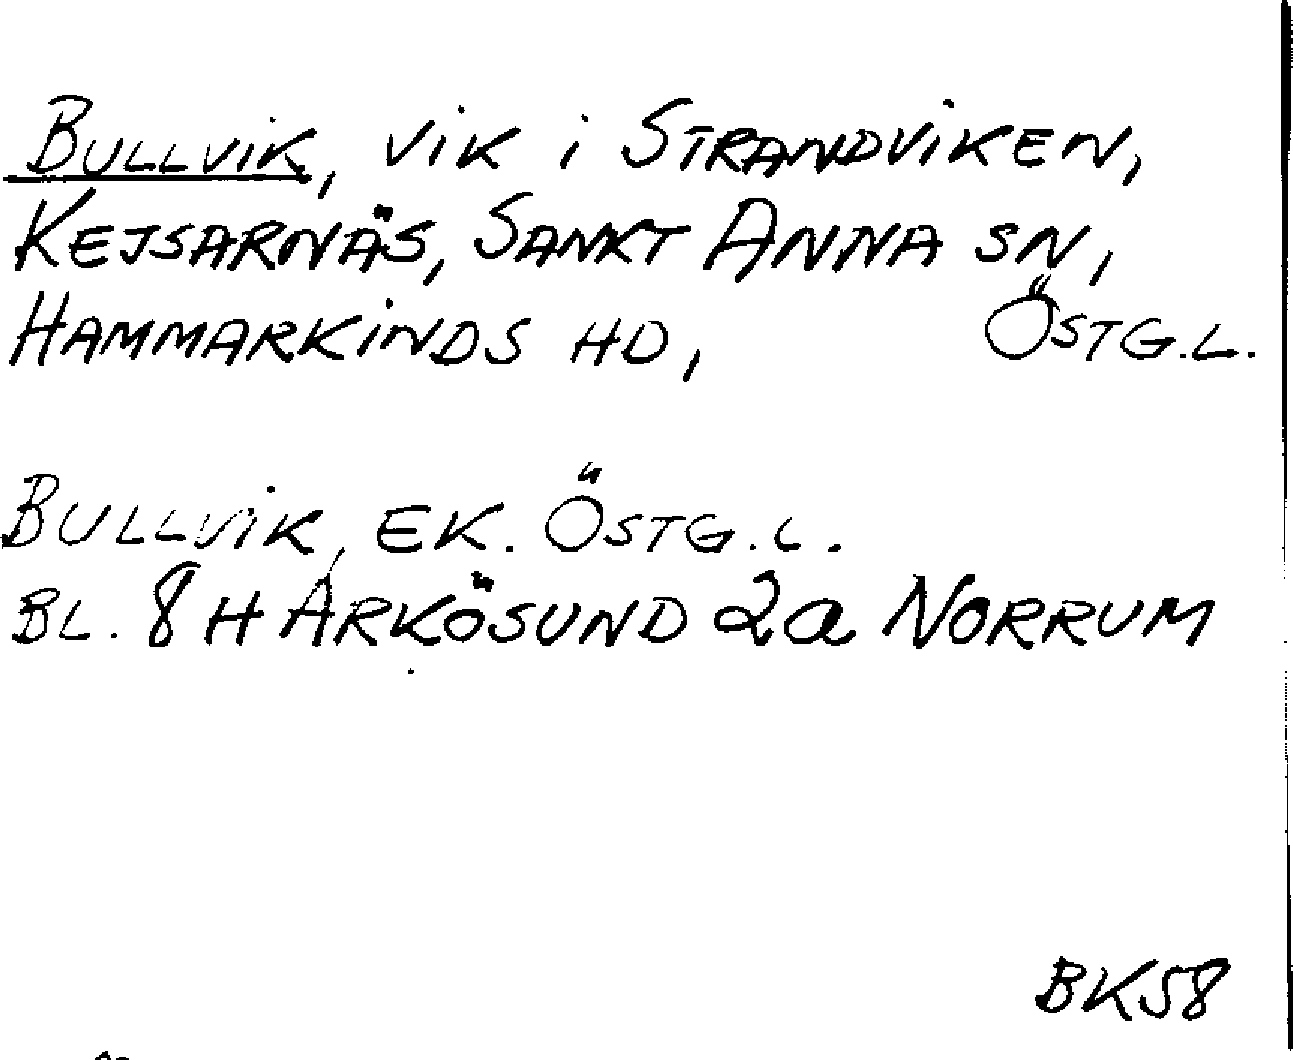 BULLVIK, VIK I STRANDVIKEN,
KEJSARNÄS, SANKT ANNA SN,
HAMMARKINDS HD, ÖSTG.L.
BULLVIK, EK. ÖSTG.L.
BL. 8 H ARKÖSUND 2a NORRUM
BK58